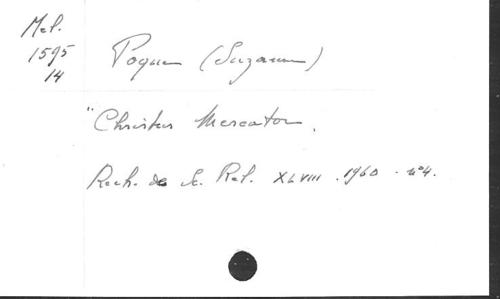 Mel.
1595
14
Poque (Suzanne)
"Christus Mercator.
Rech. de Sc. Rel. XLVIII. 1960 - n°4.